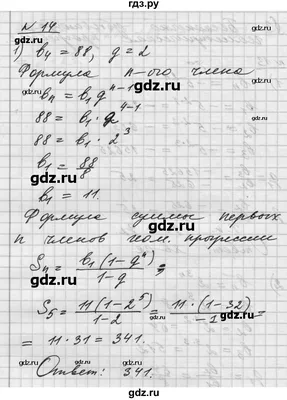 гдз.ру
N 14
1) b₄ = 88, q = 2
Формула n-ого члена
bₙ = b₁qⁿ⁻¹
88 = b₁ · 2⁴⁻¹
88 = b₁ · 2³
b₁ = 88/8
b₁ = 11.
Формула суммы первых
n членов геом. прогрессии
Sₙ = b₁(1-qⁿ)/1-q ;
S₅ = 11(1-2⁵)/1-2 = 11·(1-32)/-1 =
= 11 · 31 = 341.
Ответ: 341.
gdz.ru